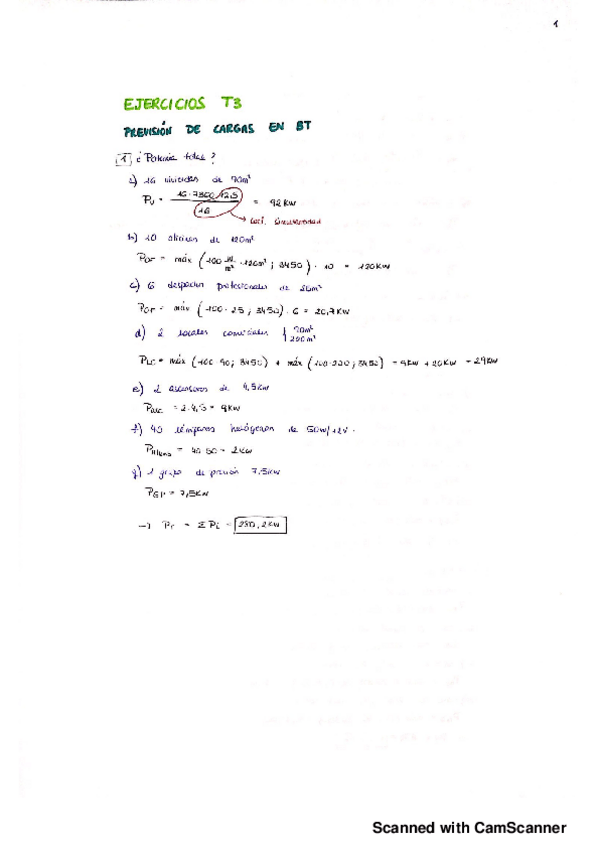 1
EJERCICIOS T3
PREVISIÓN DE CARGAS EN BT
1 ¿Potencia total?
a) 16 viviendas de 90m²
Pv = 16·7360·12,5 / 16 = 92 kW
coef. simultaneidad
b) 10 oficinas de 120m²
Pof = máx (100 W/m² · 120m² ; 3450) · 10 = 120kW
c) 6 despachos profesionales de 26m²
Pof = máx (100 · 25 ; 3450) · 6 = 20,7kW
d) 2 locales comerciales { 90m²
200m²
PLC = máx (100·90 ; 3450) + máx (100·200 ; 3450) = 9kW + 20kW = 29kW
e) 2 ascensores de 4,5kW
Pasc = 2·4,5 = 9kW
f) 40 lámparas halógenas de 50W/12V.
= 40·50 = 2kW
g) 1 grupo de presión 7,5kW
PGP = 7,5kW
→ PT = ΣPi = 280,2kW
Scanned with CamScanner